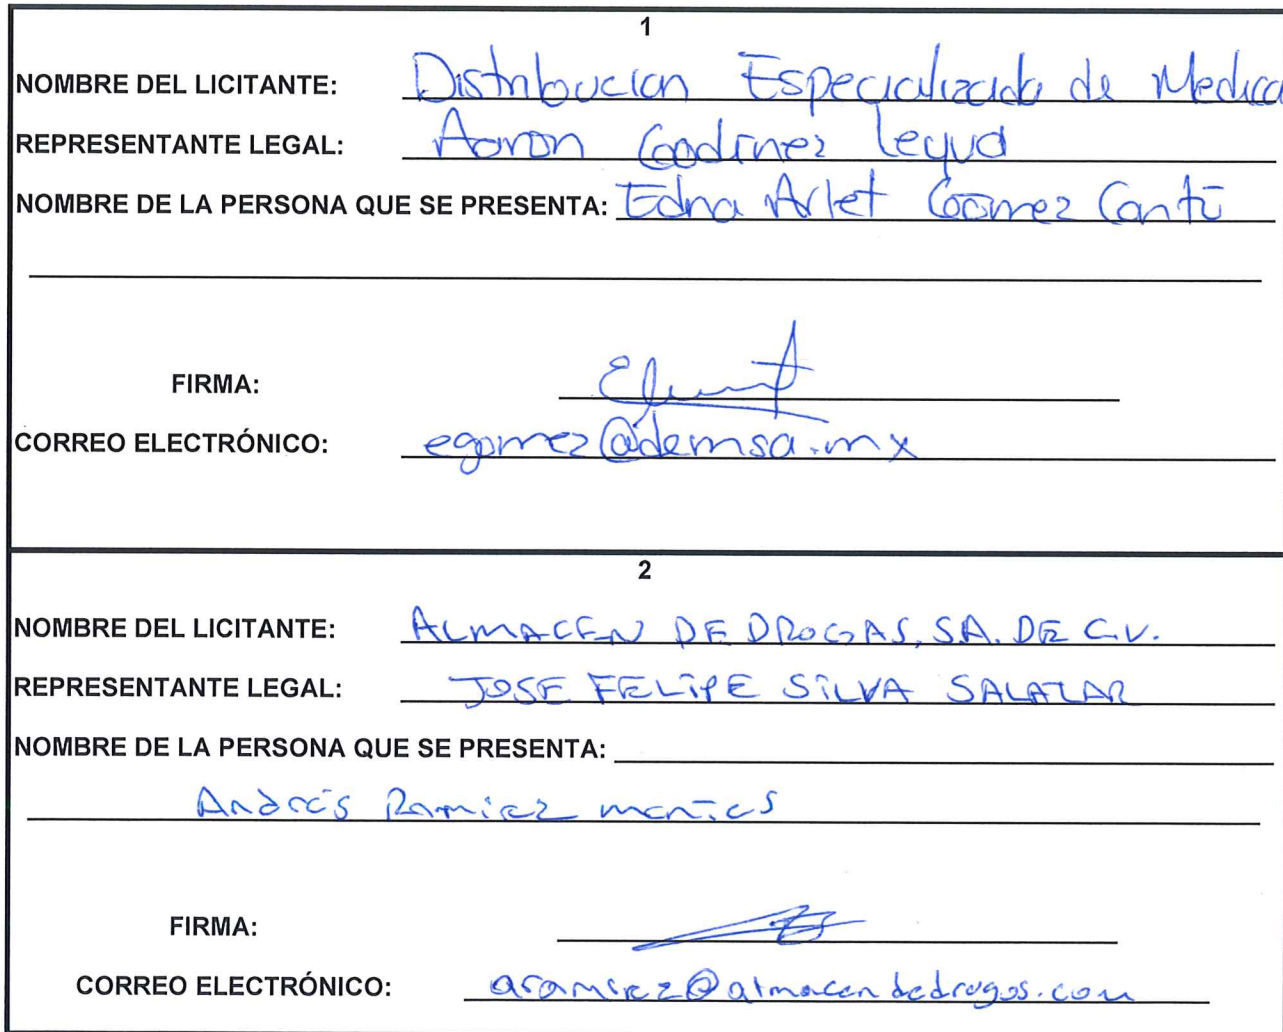 1
NOMBRE DEL LICITANTE: Distribucion Especializada de Medica
REPRESENTANTE LEGAL: Aaron Godinez
NOMBRE DE LA PERSONA QUE SE PRESENTA: Edna Arlet Gomez Cantú
FIRMA:
CORREO ELECTRÓNICO: egomez@demsa.mx
2
NOMBRE DEL LICITANTE: ALMACEN DE DROGAS, S.A. DE C.V.
REPRESENTANTE LEGAL: JOSE FELIPE SILVA SALAZAR
NOMBRE DE LA PERSONA QUE SE PRESENTA:
Andrés Ramirez
FIRMA:
CORREO ELECTRÓNICO: aramirez@almacendedrogas.com